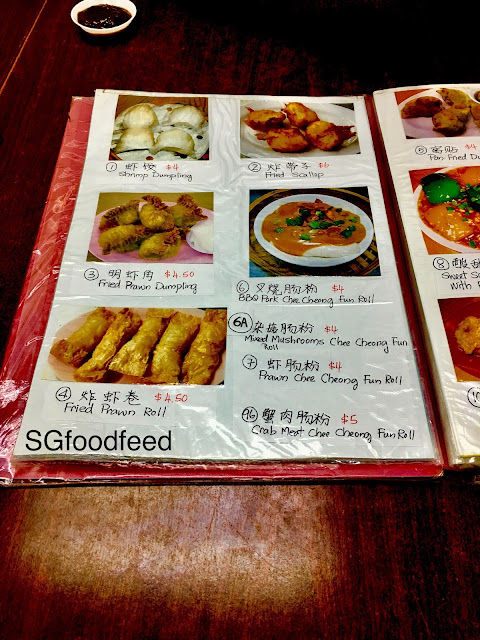 ① 虾饺 $4
Shrimp Dumpling
② 炸带子 $6
Fried Scallop
③ 明虾角 $4.50
Fried Prawn Dumpling
④ 炸虾卷 $4.50
Fried Prawn Roll
⑥ 叉烧肠粉 $4
BBQ Pork Chee Cheong Fun Roll
6A 杂菇肠粉 $4
Mixed Mushrooms Chee Cheong Fun
Roll
⑦ 虾肠粉 $4
Prawn Chee Cheong Fun Roll
蟹肉肠粉 $5
Crab Meat Chee Cheong Fun Roll
⑤ 窝贴 $4
Pan Fried
⑧
Sweet
With
SGfoodfeed